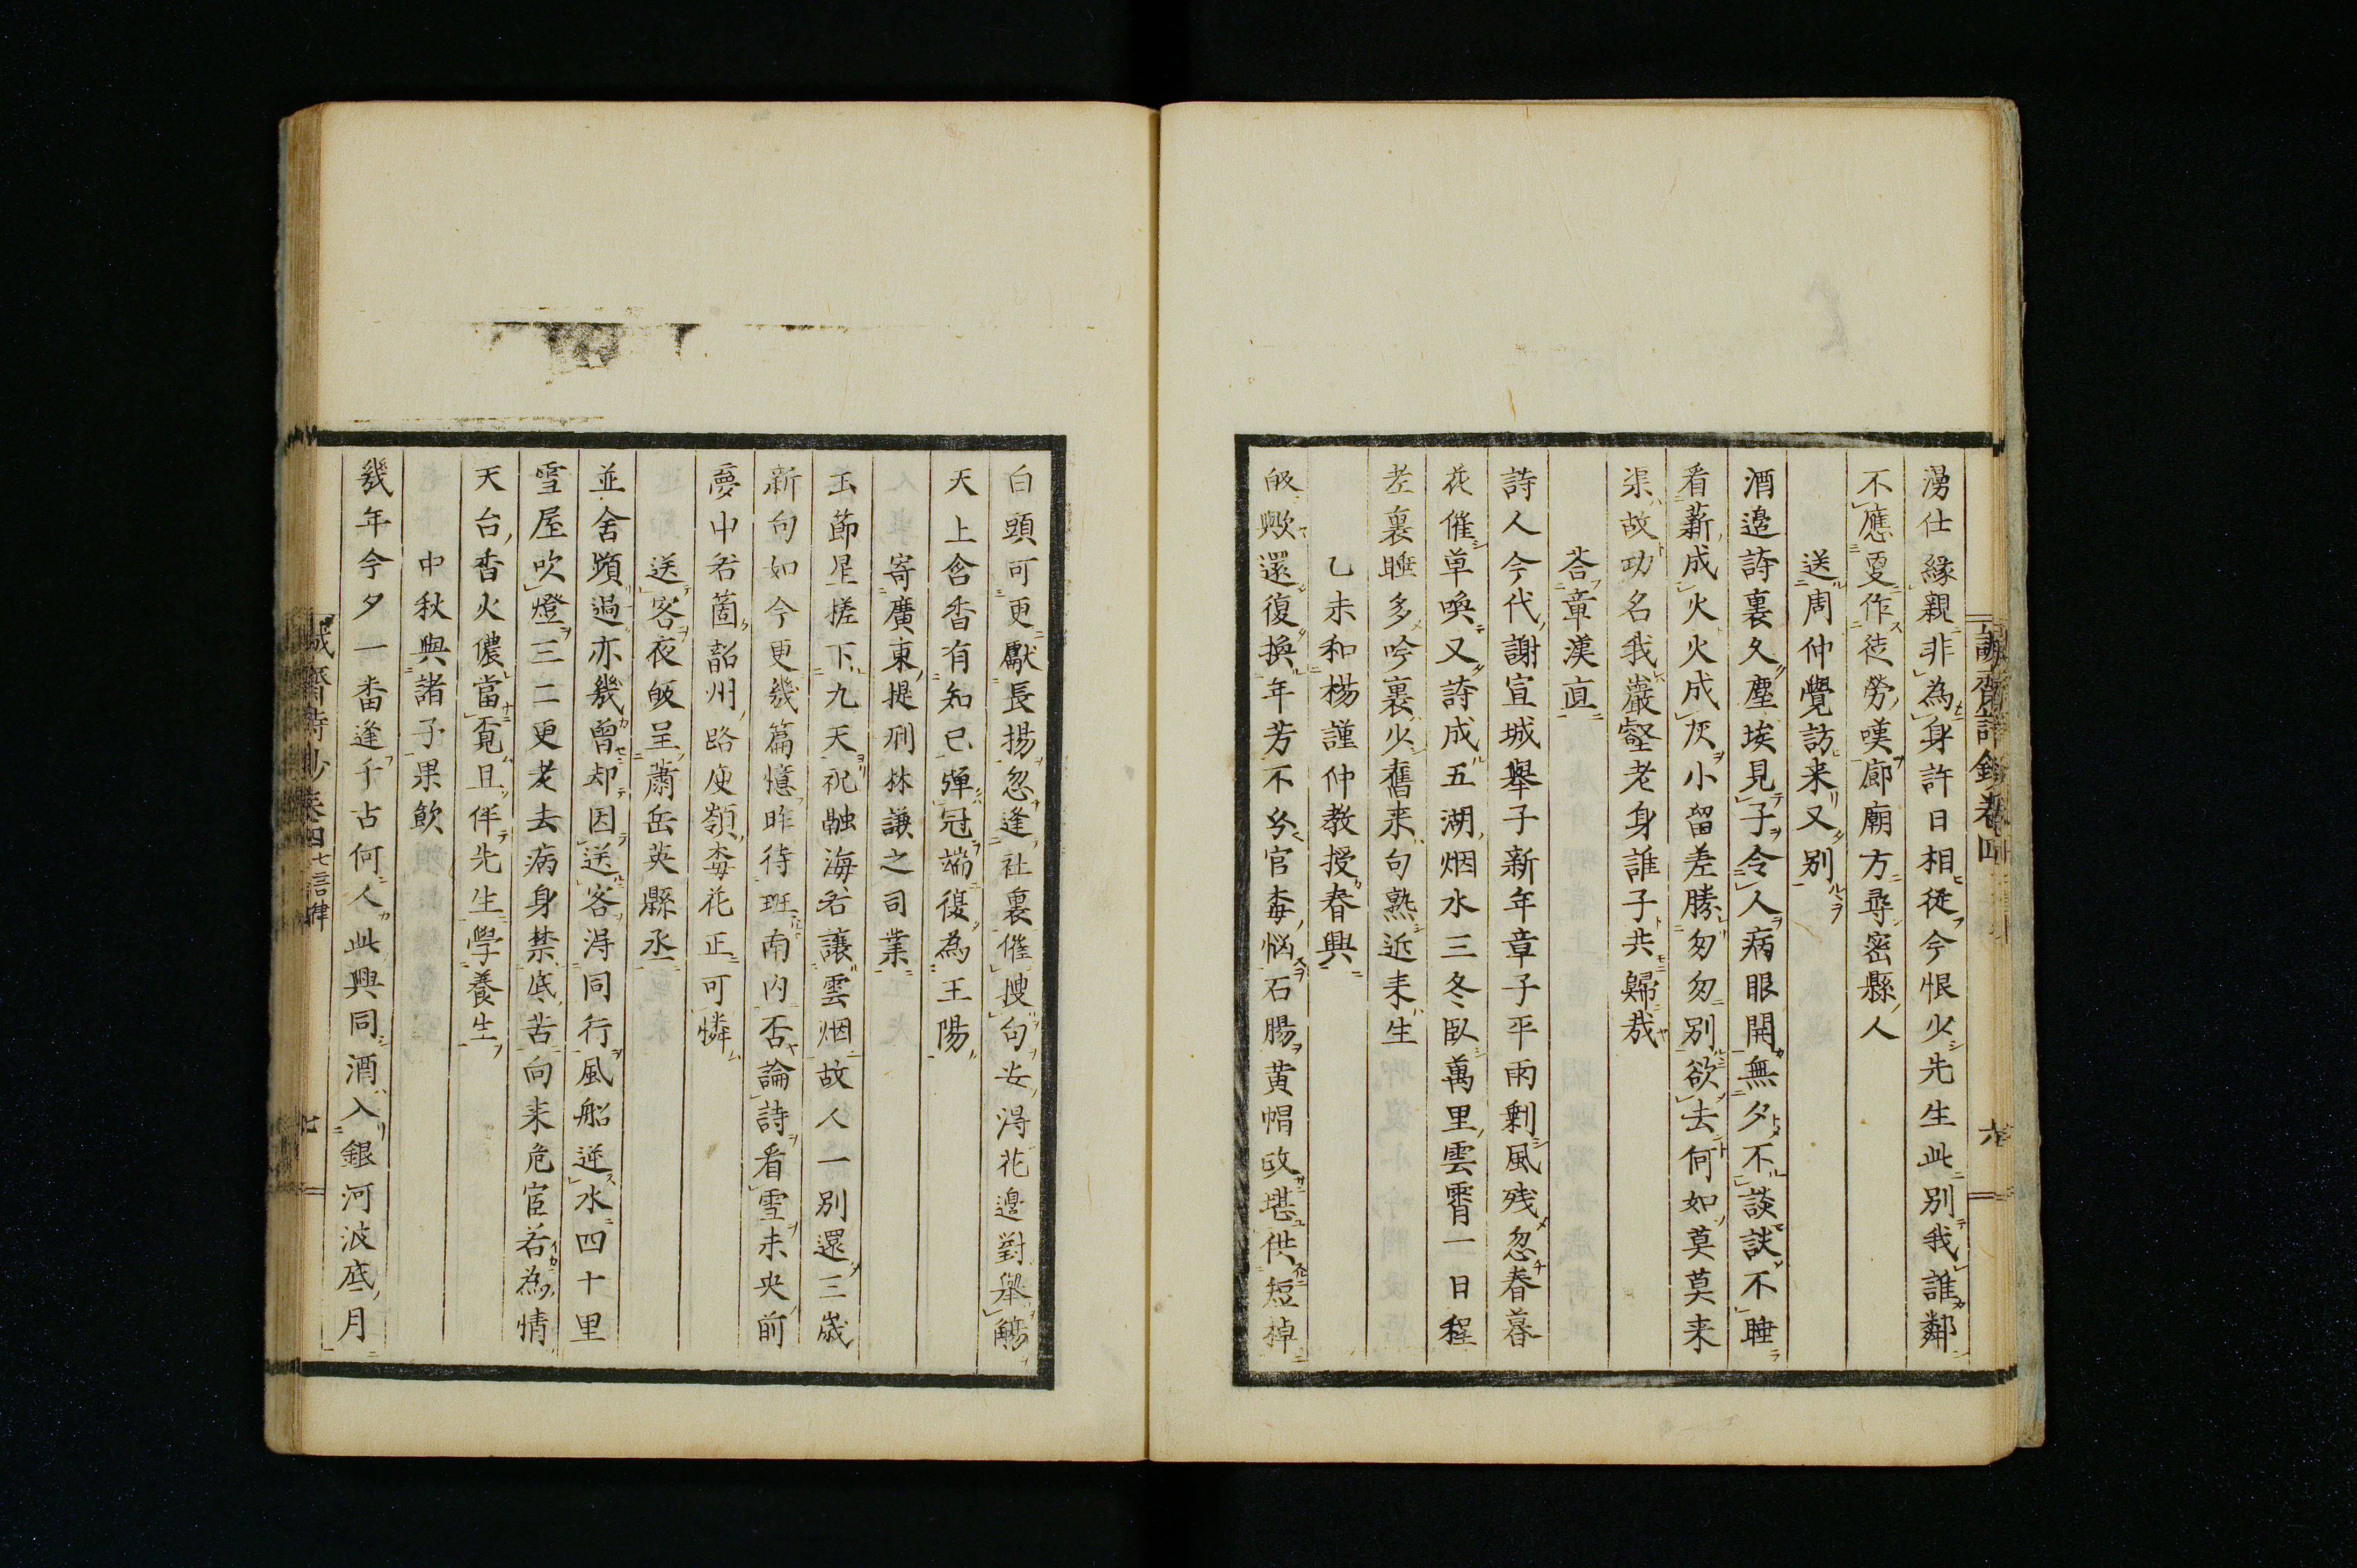 湧仕緣親非為身許日相從今恨少先生此別我誰鄰
不應夏作徒勞嘆廊廟方尋密縣人
送周仲覺訪来又别
酒邉詩裏久塵埃見子令人病眼開無夕不談談不睡
看薪成火火成灰小留差勝匆匆别欲去何如莫莫来
渠故功名我巖壑老身誰子共歸哉
荅章漢直
詩人今代謝宣城舉子新年章子平雨剰風残忽春暮
花催草喚又詩成五湖烟水三冬臥萬里雲霄一日程
老裏睡多吟裏少舊来句熟近来生
乙未和楊謹仲教授春興
皈歟還復換年芳不分官梅悩石腸黄帽政堪供短棹
白頭可更獻長揚忽逢社裏催搜句安得花邉對舉觴
天上含香有知己弾冠端復為王陽
寄廣東提刑林謙之司業
玉節星搓下九天祝融海若讓雲烟故人一別還三歳
新句如今更幾篇憶昨待班南内否論詩看雪未央前
夢中若箇韶州路庾嶺梅花正可憐
送客夜皈呈蕭岳英縣丞
並舍頻過亦幾曾却因送客得同行風船逆水四十里
雪屋吹燈三二更老去病身禁底苦向来危宦若為情
天台香火儂當覓且伴先生學養生
中秋與諸子果飲
幾年今夕一番逢千古何人此興同酒入銀河波底月
誠齋詩鈔卷四 七言律
七